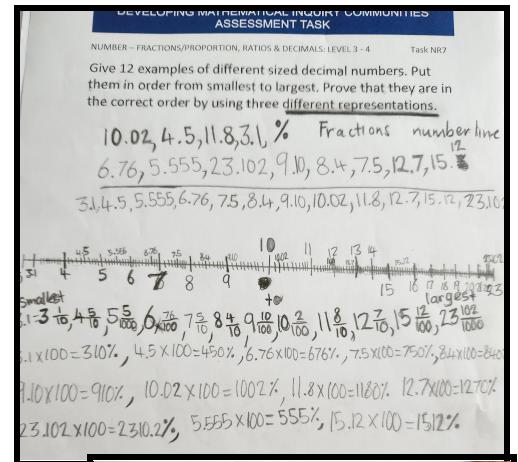 DEVELOPING MATHEMATICAL INQUIRY COMMUNITIES
ASSESSMENT TASK
NUMBER – FRACTIONS/PROPORTION, RATIOS & DECIMALS: LEVEL 3 - 4 Task NR7
Give 12 examples of different sized decimal numbers. Put
them in order from smallest to largest. Prove that they are in
the correct order by using three different representations.
10.02, 4.5, 11.8, 3.1, % Fractions number line
6.76, 5.555, 23.102, 9.10, 8.4, 7.5, 12.7, 15.12
3.1, 4.5, 5.555, 6.76, 7.5, 8.4, 9.10, 10.02, 11.8, 12.7, 15.12, 23.102
4.5 5.555 6.76 7.5 8.4 9.10 10 10.02 11 12 13 14 15.12
3.1 4 5 6 7 8 9 10 15 16 17 18 19 23
smallest largest
3.1=3 1/10, 4 5/10, 5 5/1000, 6 76/100, 7 5/10, 8 4/10, 9 10/100, 10 2/100, 11 8/10, 12 7/10, 15 12/100, 23 102/1000
3.1x100=310%, 4.5x100=450%, 6.76x100=676%, 7.5x100=750%, 8.4x100=840%
9.10x100=910%, 10.02x100=1002%, 11.8x100=1180% 12.7x100=1270%
23.102x100=2310.2%, 5.555x100=555%, 15.12x100=1512%